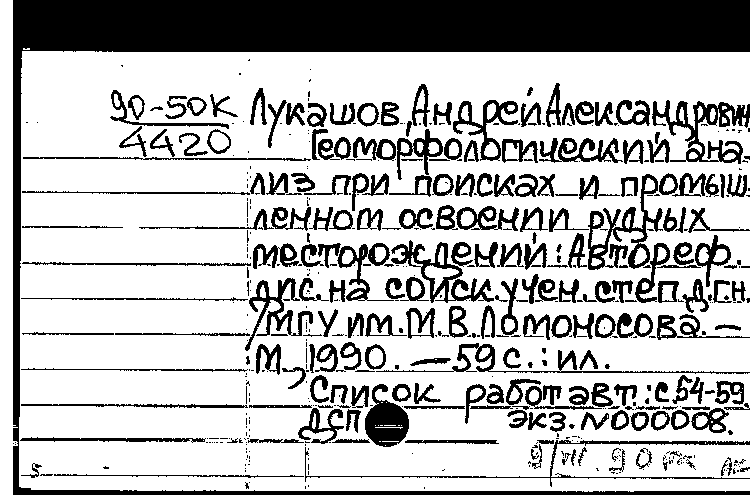 90-50К Лукашов, Андрей Александрович
4420 Геоморфологический ана-
лиз при поисках и промыш-
ленном освоении рудных
месторождений: Автореф.
дис. на соиск. учен. степ. д.г.н.
/МГУ им. М. В. Ломоносова. —
М., 1990. — 59 с.: ил.
Список работ авт.: с. 54-59.
ДСП экз. N000008.
9/VII.90
5